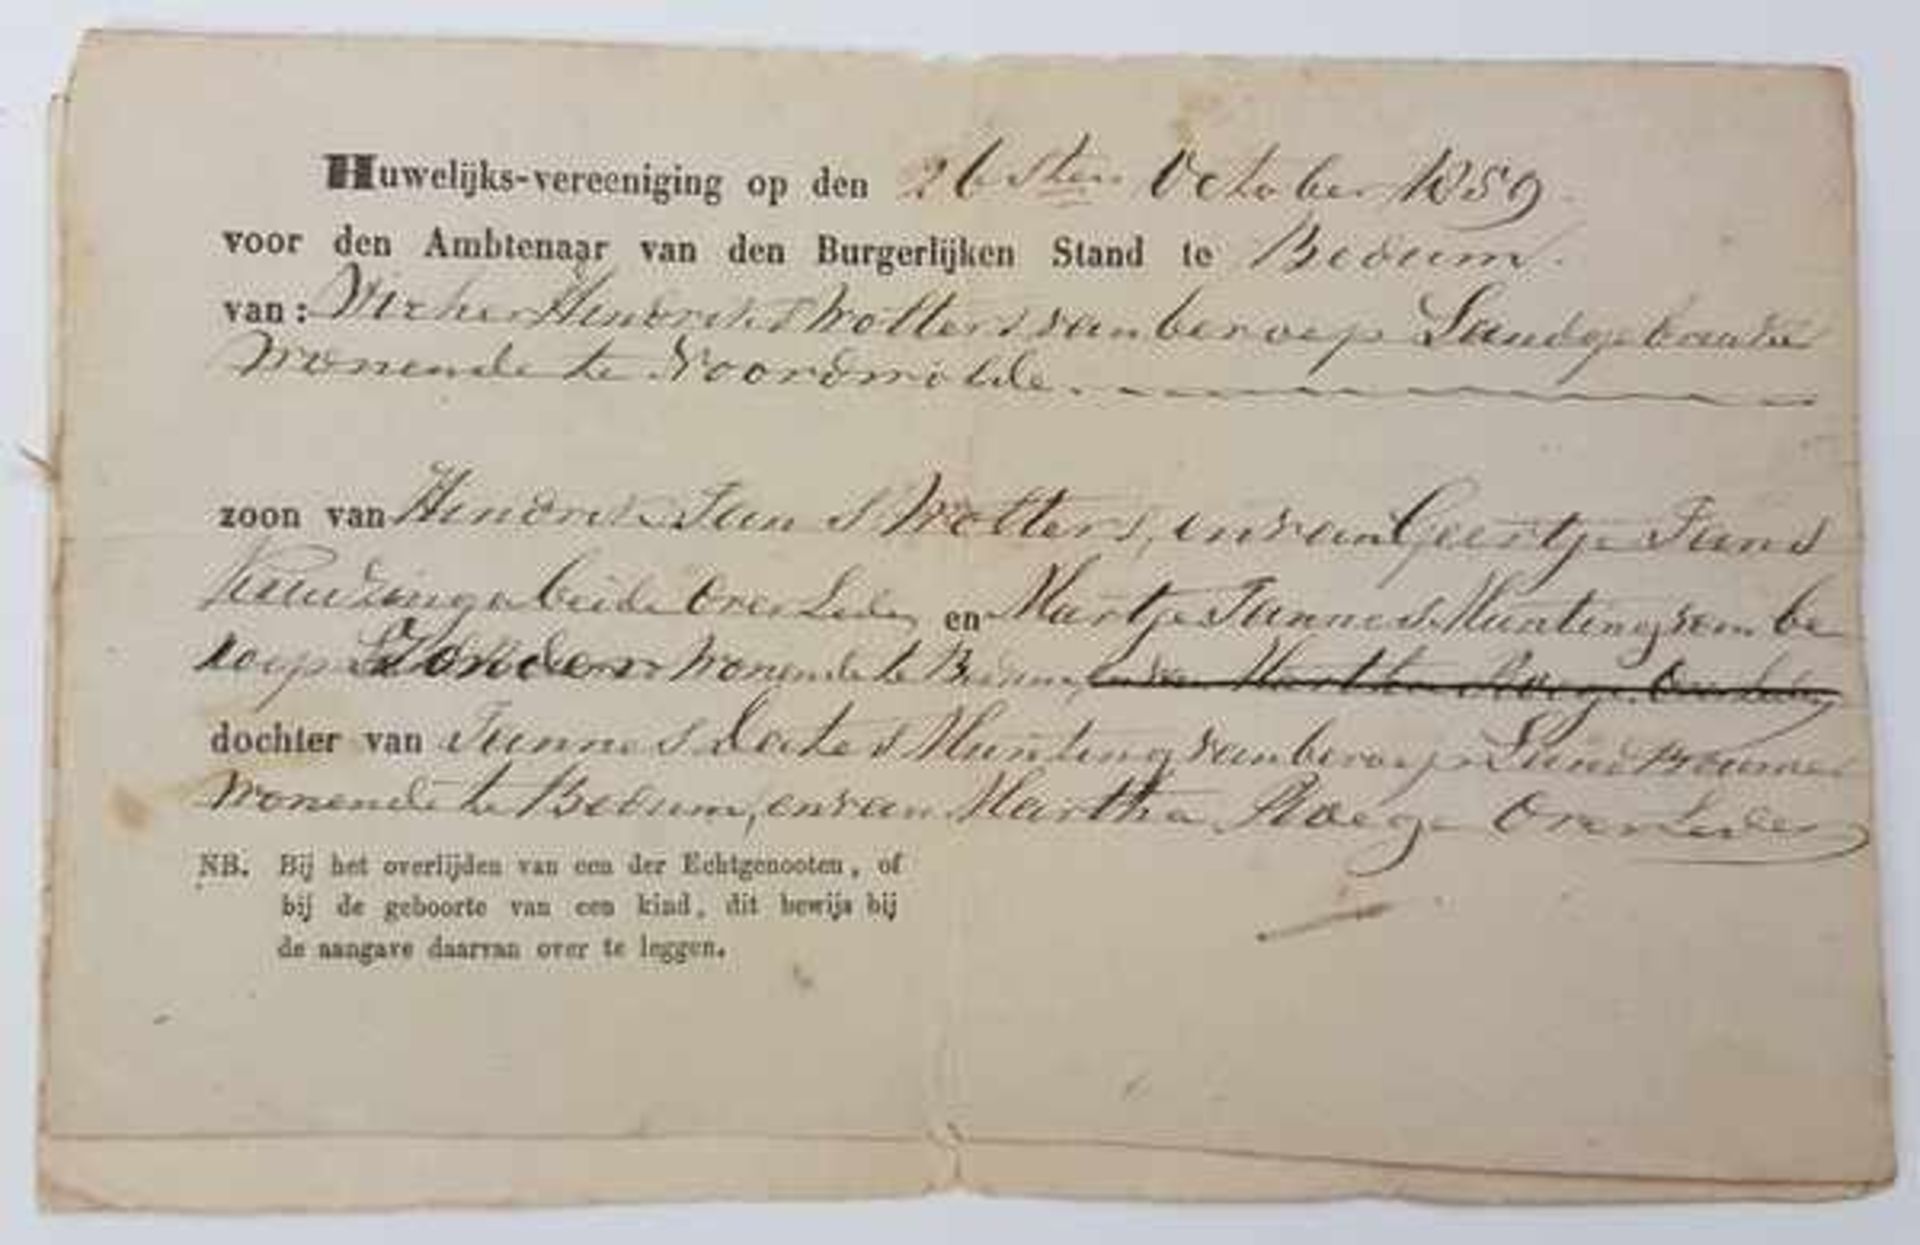 Huwelijks-vereeniging op den 26sten October 1859.
voor den Ambtenaar van den Burgerlijken Stand te Bedum.
van: Hendriks Wolters van beroep Landgebruiker
wonende te Noordwolde.
zoon van Hendrik Jans Wolters, en van Geertje Jans
beide overleden en Martje Jannes Hunting van be
roep Zonder wonende te Bedum, en van Martha Ploeg overleden
dochter van Jannes Hunting van beroep Landbouwer
wonende te Bedum, en van Martha Ploeg overleden
NB. Bij het overlijden van een der Echtgenooten, of
bij de geboorte van een kind, dit bewijs bij
de aangave daarvan over te leggen.